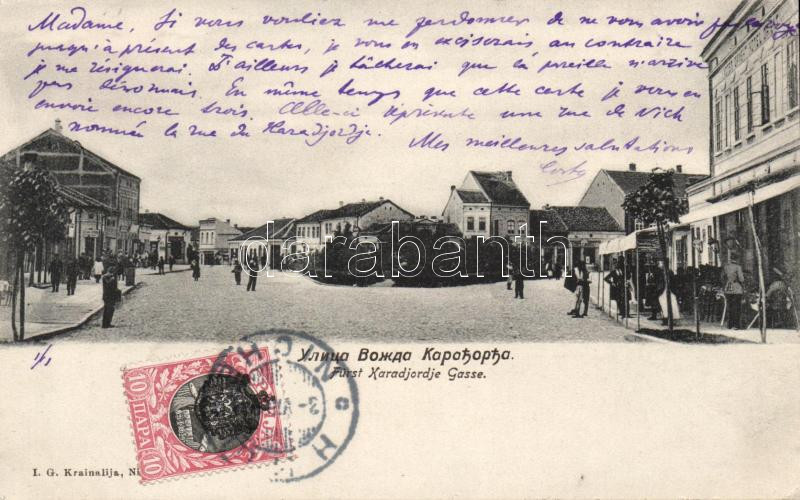 Madame, Si vous vouliez me pardonner de ne vous avoir pas envoyé
jusqu'à présent des cartes, je vous en excuserais, au contraire
je me résignerai. D'ailleurs je tâcherai que la pareille n'arrive
pas désormais. En même temps que cette carte je vous en
envoie encore trois. Celle-ci représente une rue de Nich
nommée la rue du Karadjordje.
Mes meilleures salutations
darabanth
Улица Вожда Карађорђа.
Fürst Karadjordje Gasse.
1/1
10 ПАРА 10
НИШ
I. G. Krainalija, Ni